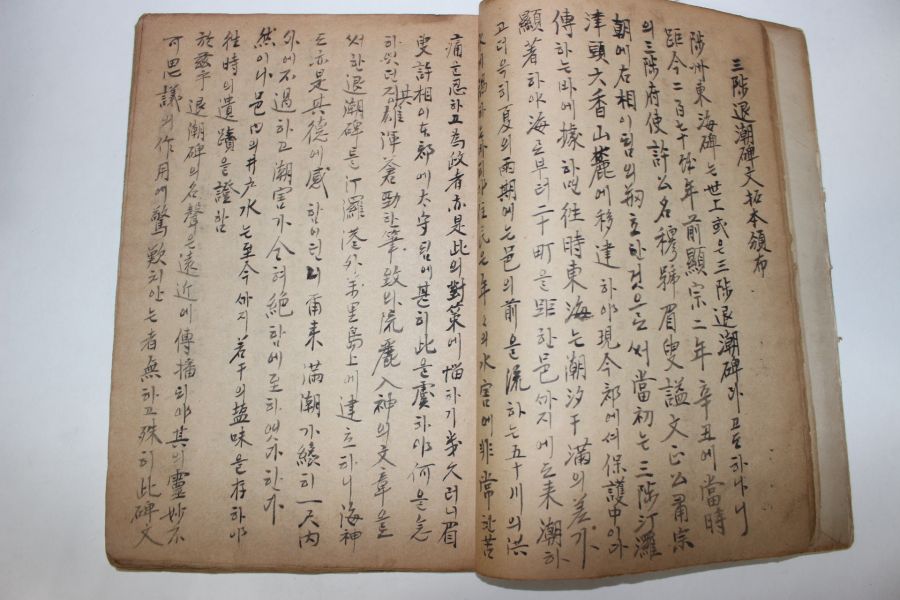 三陟退潮碑文拓本頒布
陟州東海碑는 世上 或은 三陟退潮碑라고도 하나니
距今二百七十餘年前 顯宗二年 辛丑에 當時
의 三陟府使 許公 名穆 號眉叟 謚文正公 肅宗
朝에 右相이 됨의 한 것으로써 當初는 三陟汀羅
津頭 六香山麓에 移建하야 現今 郡에서 保護中이라
傳하는 바에 據하면 往時 東海는 潮汐干滿의 差가
顯著하야 海로부터 二十町을 距한 邑까지에도 來潮하
고 더욱히 夏의 雨期에는 邑의 前을 流하는 五十川의 洪
年々의 水害에 非常한 苦
痛을 忍하고 爲政者 亦是 此의 對策에 惱하기 幾久러니 眉
叟 許相이 本郡에 太守 됨에 甚히 此을 虞하야 何을 念
하엿던지 其 雄渾蒼勁한 筆致와 流麗入神의 文章으로
써 한 退潮碑를 汀羅港外 萬里島上에 建立하니 海神
도 亦是 其德에 感함이런지 爾來 滿潮가 纔히 一尺內
外에 不過하고 潮害가 全혀 絶함에 至하엿다 한다
然이나 邑內의 井戶水는 至今까지 若干의 鹽味을 存하야
往時의 遺蹟을 證함
於玆乎 退潮碑의 名聲은 遠近에 傳播되야 其의 靈妙不
可思議의 作用에 驚歎치 안는 者 無하고 殊히 此碑文